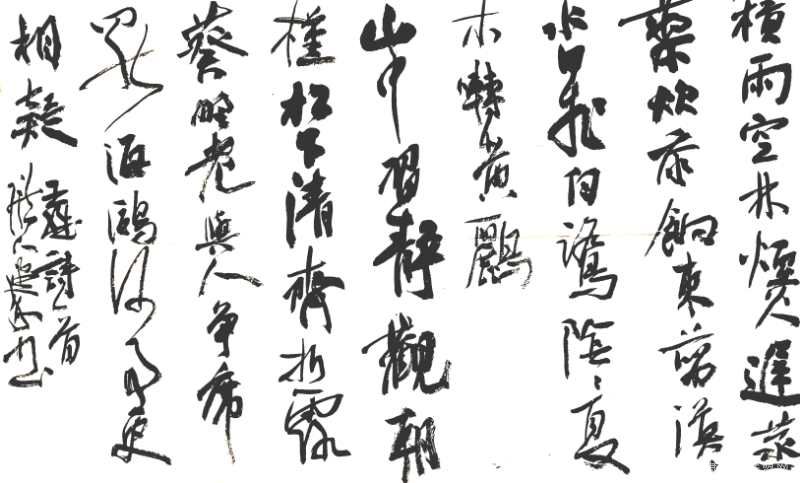 積雨空林煙火遲蒸
藜炊黍餉東菑漠〻
水田飛白鷺陰〻夏
木囀黃鸝
山中習靜觀朝
槿松下清齋折露
葵野老與人爭席
罷海鷗何事更
相疑
王維詩一首